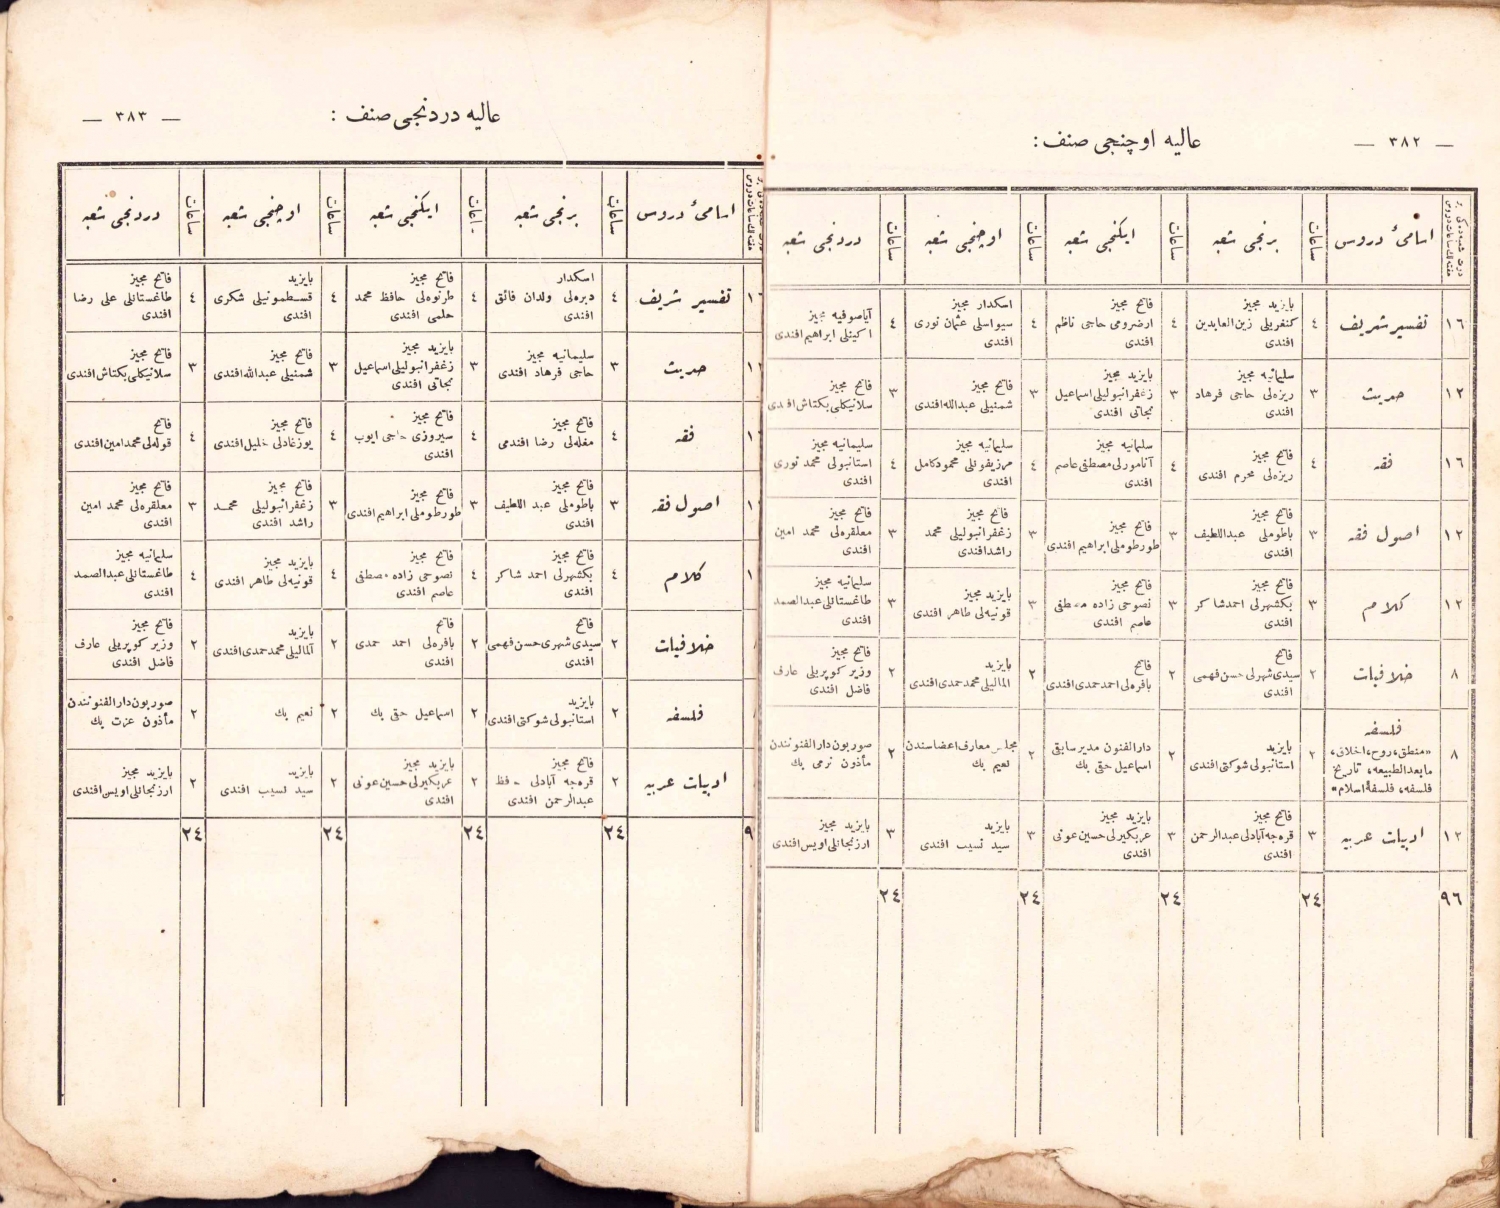 — ٣٨٢ —
عاليه اوچنجى صنف :
درت شعبه ده كى بر هفته لك ساعات دروس
اسامئ دروس
ساعات
برنجى شعبه
ساعات
ايكنجى شعبه
ساعات
اوچنجى شعبه
ساعات
دردنجى شعبه
١٦
تفسير شريف
٤
بايزيد مجيز
كنغريلى زين العابدين
افندى
٤
فاتح مجيز
ارضرومى حاجى ناظم
افندى
٤
اسكدار مجيز
سيواسلى عثمان نورى
افندى
٤
اياصوفيه مجيز
اكينلى ابراهيم افندى
١٢
حديث
٣
سليمانيه مجيز
ريزه لى حاجى فرهاد
افندى
٣
بايزيد مجيز
زغفرانبوليلى اسماعيل
نجاتى افندى
٣
فاتح مجيز
شمنيلى عبدالله افندى
٣
فاتح مجيز
سلانيكلى بكتاش افندى
١٦
فقه
٤
فاتح مجيز
ريزه لى محرم افندى
٤
سليمانيه مجيز
آنامورلى مصطفى عاصم
افندى
٤
سليمانيه مجيز
مرزيفونلى محمود كامل
افندى
٤
سليمانيه مجيز
استانبولى محمد نورى
افندى
١٢
اصول فقه
٣
فاتح مجيز
باطوملى عبداللطيف
افندى
٣
فاتح مجيز
طورطوملى ابراهيم افندى
٣
فاتح مجيز
زغفرانبوليلى محمد
راشد افندى
٣
فاتح مجيز
معلقره لى محمد امين
افندى
١٢
كلام
٣
فاتح مجيز
بكشهرلى احمد شاكر
افندى
٣
فاتح مجيز
نصوحى زاده مصطفى
عاصم افندى
٣
بايزيد مجيز
قونيه لى طاهر افندى
٣
سليمانيه مجيز
طاغستانلى عبدالصمد
افندى
٨
خلافيات
٢
فاتح
سيدى شهرلى حسن فهمى
افندى
٢
فاتح
بافره لى احمد حمدى افندى
٢
بايزيد
المالیلى محمد حمدى افندى
٢
فاتح مجيز
وزير كوپريلى عارف
فاضل افندى
٨
فلسفه
«منطق، روح، اخلاق،
مابعدالطبيعه، تاريخ
فلسفه، فلسفۀ اسلام»
٢
بايزيد
استانبولى شوكتى افندى
٢
دار الفنون مدير سابقى
اسماعيل حقى بك
٢
مجلس معارف اعضاسندن
نعيم بك
٢
صوربون دار الفنوننندن
مأذون نرمى بك
١٢
ادبيات عربيه
٣
فاتح مجيز
قره جه آبادلى عبدالرحمن
افندى
٣
بايزيد مجيز
عربكيرلى حسين عونى
افندى
٣
بايزيد
سيد نسيب افندى
٣
بايزيد مجيز
ارزنجانلى اويس افندى
٩٦
٢٤
٢٤
٢٤
٢٤
— ٣٨٣ —
عاليه دردنجى صنف :
اسامئ دروس
ساعات
برنجى شعبه
ساعات
ايكنجى شعبه
ساعات
اوچنجى شعبه
ساعات
دردنجى شعبه
تفسير شريف
٤
اسكدار
دبره لى ولدان فائق
افندى
٤
فاتح مجيز
طرنوه لى حافظ محمد
حلمى افندى
٤
بايزيد
قسطمونيلى شكرى
افندى
٤
فاتح مجيز
طاغستانلى على رضا
افندى
حديث
٣
سليمانيه مجيز
حاجى فرهاد افندى
٣
بايزيد مجيز
زغفرانبوليلى اسماعيل
نجاتى افندى
٣
فاتح مجيز
شمنيلى عبدالله افندى
٣
فاتح مجيز
سلانيكلى بكتاش افندى
فقه
٤
فاتح مجيز
مغله لى رضا افندى
٤
فاتح مجيز
سيروزى حاجى ايوب
افندى
٤
فاتح مجيز
يوزغادلى خليل افندى
٤
فاتح
قوله لى محمد امين افندى
اصول فقه
٣
فاتح مجيز
باطوملى عبد اللطيف
افندى
٣
فاتح مجيز
طورطوملى ابراهيم افندى
٣
فاتح مجيز
زغفرانبوليلى محمد
راشد افندى
٣
فاتح مجيز
معلقره لى محمد امين
افندى
كلام
٤
فاتح مجيز
بكشهرلى احمد شاكر
افندى
٤
فاتح مجيز
نصوحى زاده مصطفى
عاصم افندى
٤
بايزيد مجيز
قونيه لى طاهر افندى
٤
سليمانيه مجيز
طاغستانلى عبدالصمد
افندى
خلافيات
٢
فاتح
سيدى شهرى حسن فهمى
افندى
٢
فاتح
بافره لى احمد حمدى
افندى
٢
بايزيد
آلمالیلى محمد حمدى افندى
٢
فاتح مجيز
وزير كوپريلى عارف
فاضل افندى
فلسفه
٢
بايزيد
استانبولى شوكتى افندى
٢
اسماعيل حقى بك
٢
نعيم بك
٢
صوربون دار الفنوننندن
مأذون عزت بك
ادبيات عربيه
٢
فاتح مجيز
قره جه آبادلى حافظ
عبدالرحمن افندى
٢
بايزيد مجيز
عربكيرلى حسين عونى
افندى
٢
بايزيد
سيد نسيب افندى
٢
بايزيد مجيز
ارزنجانلى اويس افندى
٢٤
٢٤
٢٤
٢٤